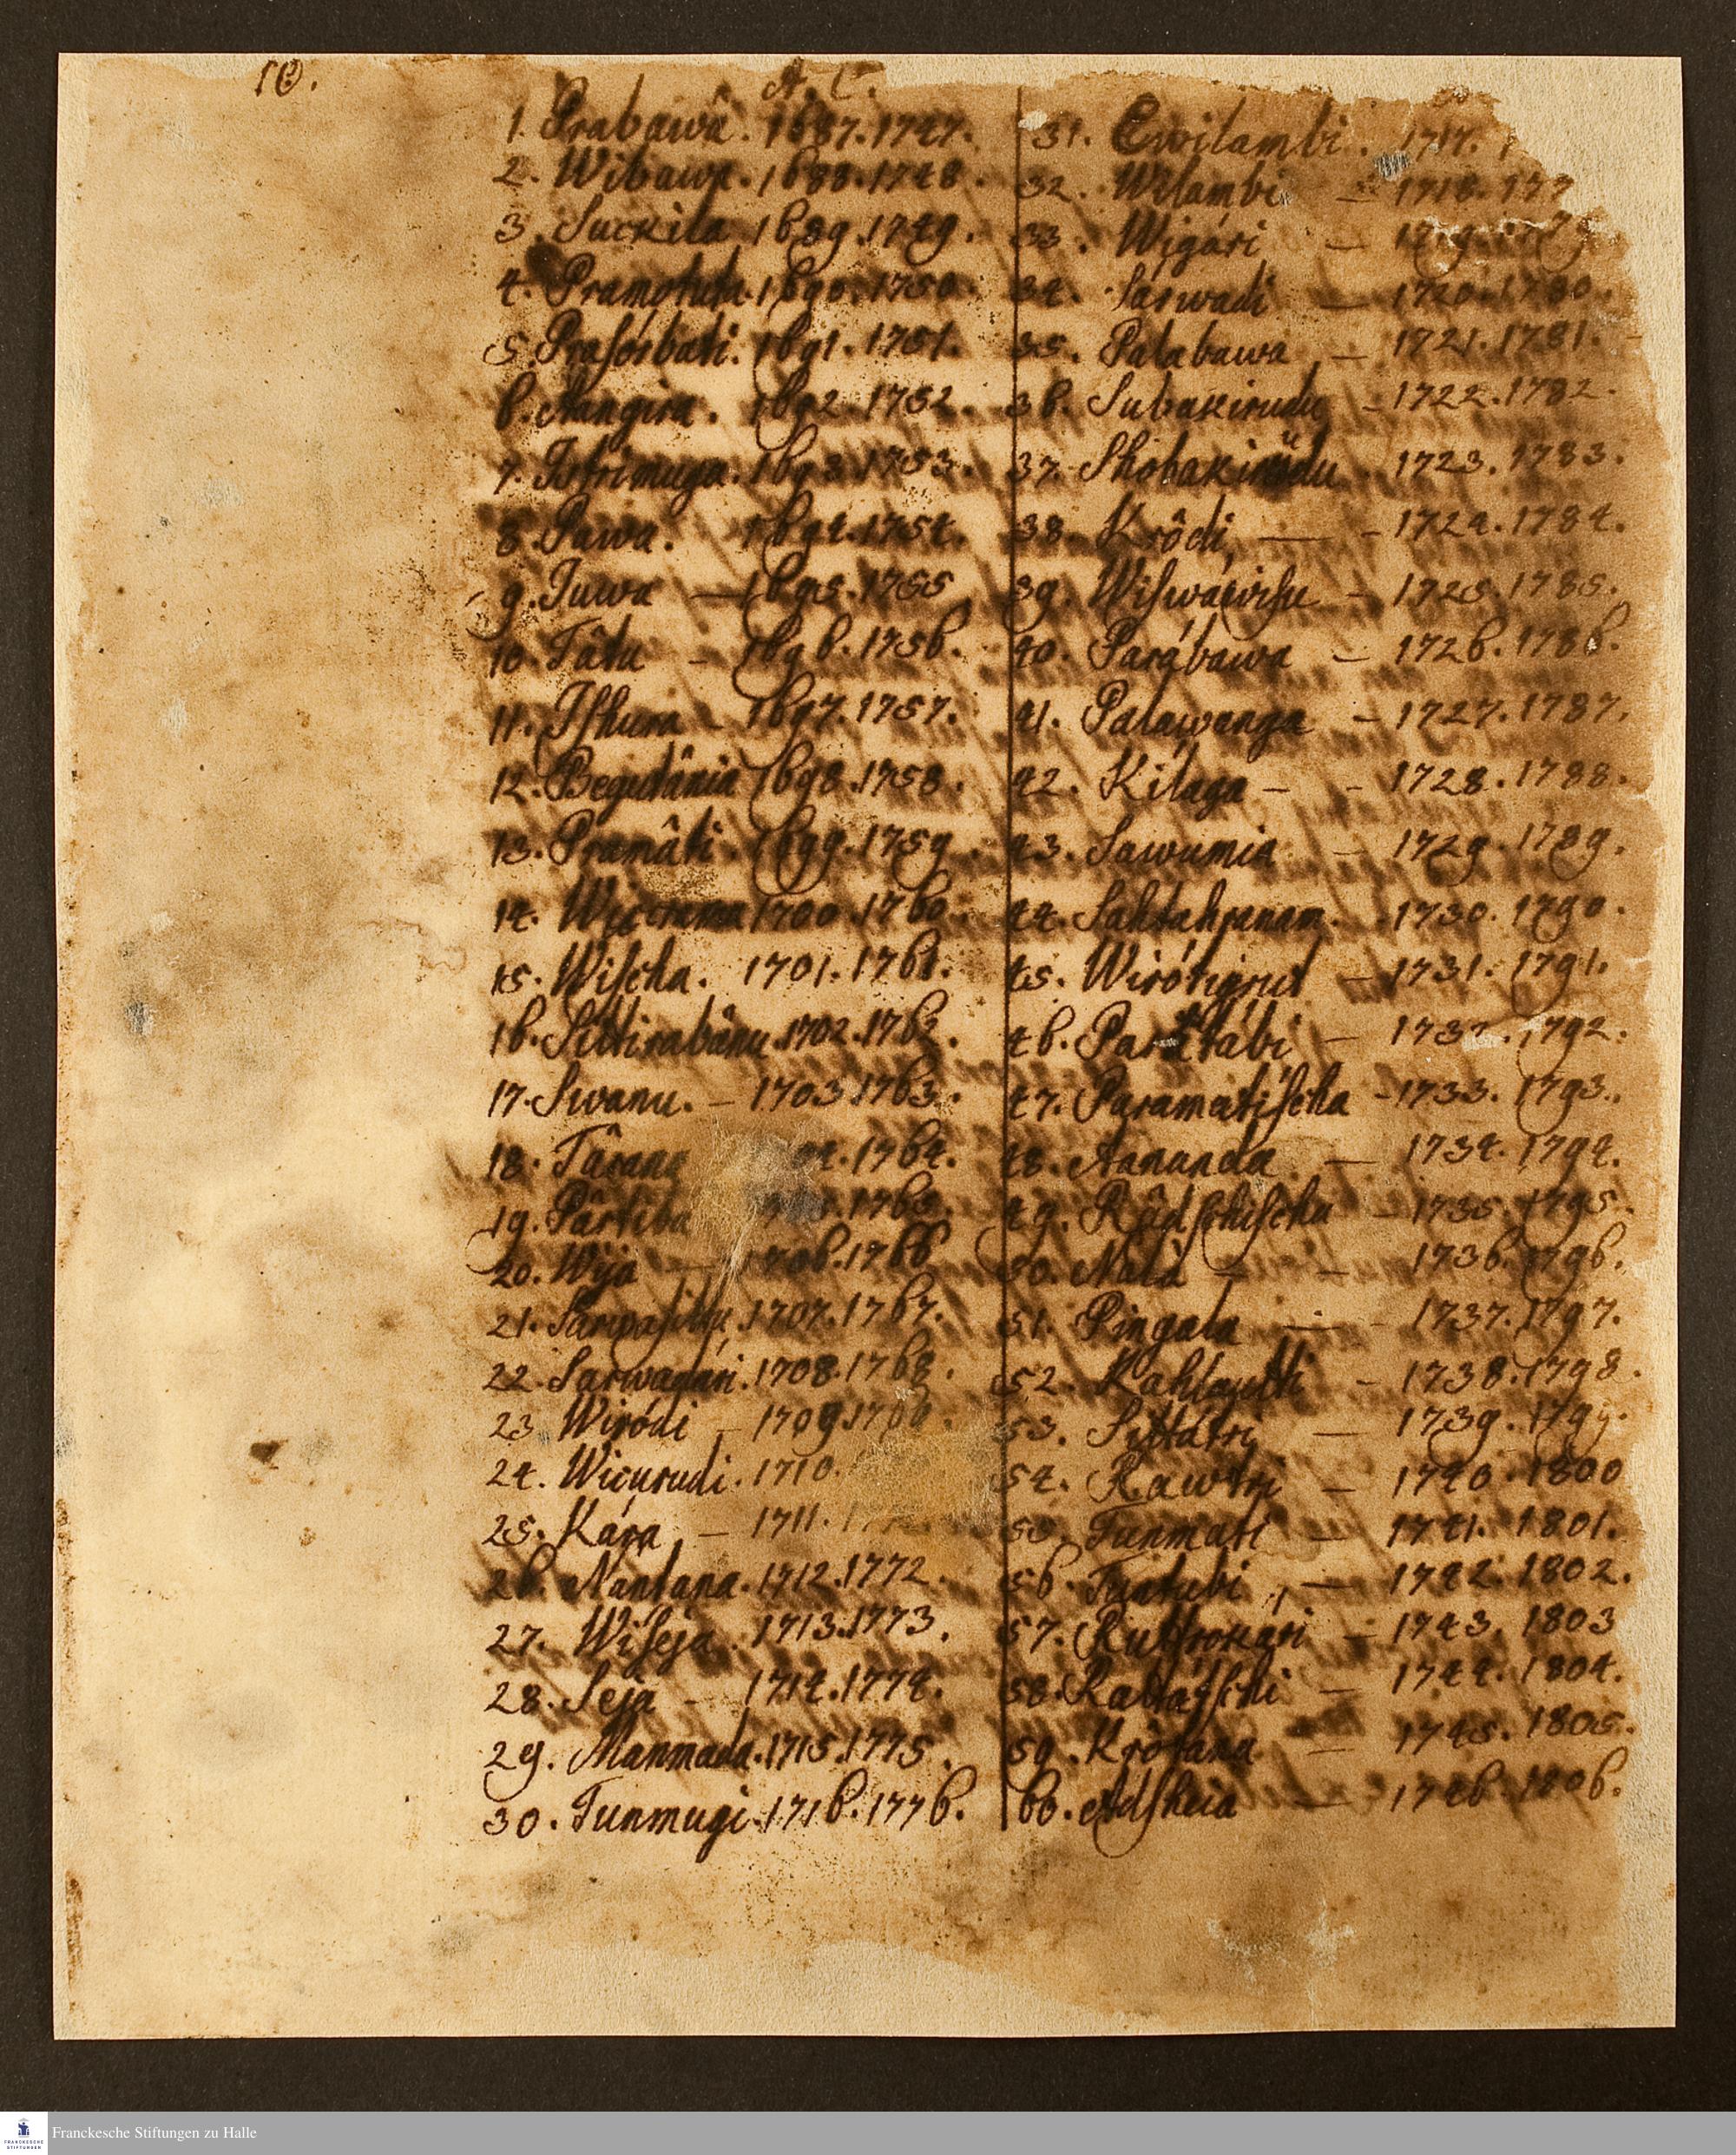 10.
A. C.
1. Prabawa. 1687. 1747.
2. Wibawa. 1688. 1748.
3. Suckila 1689. 1749.
4. Pramotuta. 1690. 1750.
5. Prasorbati. 1691. 1751.
6. Nangira. 1692. 1752.
7. Istrimuga. 1693. 1753.
8. Pawa. 1694. 1754.
9. Juwa — 1695. 1755
10. Tâtu - 1696. 1756.
11. Jshura - 1697. 1757.
12. Begudânia 1698. 1758.
13. Pramâti. 1699. 1759.
14. 1700. 1760.
15. Wischa. 1701. 1761.
16. Sittirabânu. 1702. 1762.
17. Swanu. - 1703. 1763.
18. Târana 1764.
19. Pârtiba 1765.
20. Wija — 1706. 1766
21. 1707. 1767.
22. Sarwagári. 1708. 1768.
23. Wiródi - 1709.
24. Wicurudi. 1710.
25. Kára - 1711.
26. Nantana. 1712. 1772.
27. Wiseja. 1713. 1773.
28. Seja - 1714. 1774.
29. Manmada. 1715. 1775.
30. Tunmugi. 1716. 1776.
31. Ewilambi. 1717.
32. Wilambi — 1718.
33. Wigári —
34. Sárwadi — 1720. 1780.
35. Palabawa — 1721. 1781.
36. Subakirudu - 1722. 1782.
37. Shobakirüdu. 1723. 1783.
38. Krôdi, — - 1724. 1784.
39. Wiswáwisu - 1725. 1785.
40. Parábawa - 1726. 1786.
41. Palawanga - 1727. 1787.
42. Kilaga - - 1728. 1788.
43. Sawumia - 1729. 1789.
44. Sahtahranam. 1730. 1790.
45. Wirótigrut - 1731. 1791.
46. - 1732. 1792.
47. Paramatischa - 1733. 1793.
48. Aananda. — 1734. 1794.
49. Râdschischa - 1735. 1795.
50. Nala - - 1736. 1796.
51. Pingala — - 1737. 1797.
52. - 1738. 1798.
53. Sittátri — 1739. 1799.
54. Rawtri — 1740. 1800
55. Tunmati — 1741. 1801.
56. Tuntubi, — 1742. 1802.
57. Ruttrokári — 1743. 1803
58. Rattátschi — 1744. 1804.
59. Krôtana — 1745. 1805.
60. Adsheia — 1746. 1806.
Franckesche Stiftungen zu Halle
FRANCKESCHE
STIFTUNGEN